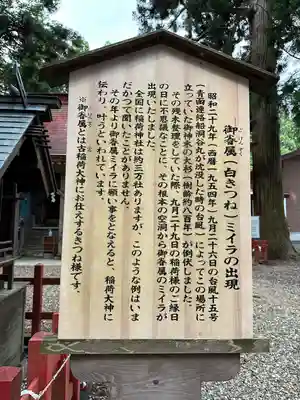 御香属(白きつね)ミイラの出現
ごこうぞく
昭和二十九年(西暦一九五四年)九月二十六日の台風十五号
(青函連絡船洞谷丸が沈没した時の台風)によってこの場所に
立っていた御神木の大杉(樹齢約八百年)が倒伏しました。
その残木整理をしていた際、九月二十九日の稲荷様のご縁日
の日に不思議なことに、その根本の空洞から御香属のミイラが
出現いたしました。
全国に稲荷神社は約三万社ありますが、このような例はいま
だかつて聞いたことがありません。
その年より御香属ミイラに願い事をとなえると、稲荷大神に
伝わり、叶うといわれています。
※御香属とは古稲荷大神にお仕えするきつね様です。